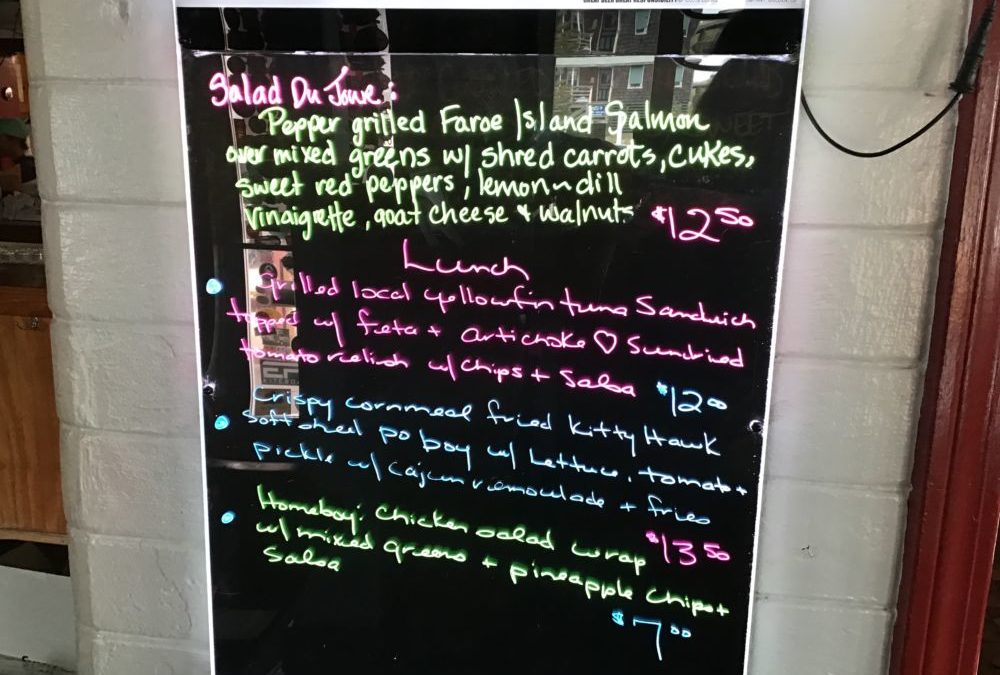 Salad Du Jour:
Pepper grilled Faroe Island Salmon
over mixed greens w/ shred carrots, cukes,
sweet red peppers, lemon~dill
vinaigrette, goat cheese & walnuts $12.50
Lunch
Grilled local yellowfin tuna Sandwich
topped w/ feta + artichoke ♡ Sundried
tomato relish w/ chips + salsa $12.00
Crispy cornmeal fried Kitty Hawk
Soft shell po boy w/ lettuce, tomato +
pickle w/ cajun remoulade + fries
$13.50
Homeboy: chicken salad wrap
w/ mixed greens + pineapple chips +
salsa
$7.00